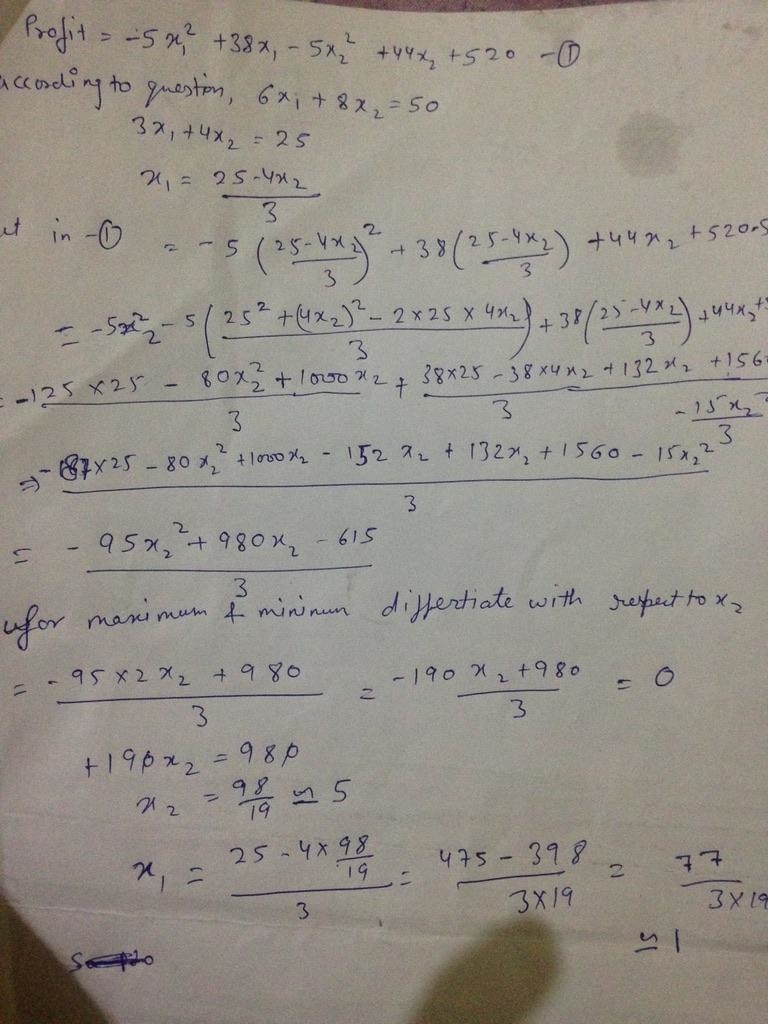 Profit = -5x₁² + 38x₁ - 5x₂² + 44x₂ + 520 -①
according to question, 6x₁ + 8x₂ = 50
3x₁ + 4x₂ = 25
x₁ = (25-4x₂)/3
ut in -① = -5((25-4x₂)/3)² + 38((25-4x₂)/3) + 44x₂ + 520-5
= -5x₂² - 5((25² + (4x₂)² - 2×25×4x₂)/3) + 38((25-4x₂)/3) + 44x₂ +5
= (-125×25 - 80x₂² + 1000x₂)/3 + (38×25 - 38×4x₂ + 132x₂ + 156)/3 - 15x₂²/3
⇒ (-87×25 - 80x₂² + 1000x₂ - 152x₂ + 132x₂ + 1560 - 15x₂²)/3
= (-95x₂² + 980x₂ - 615)/3
for maximum & mininun differtiate with respect to x₂
= (-95×2x₂ + 980)/3 = (-190x₂ + 980)/3 = 0
+190x₂ = 980
x₂ = 98/19 ≃ 5
x₁ = (25 - 4×98/19)/3 = (475 - 398)/(3×19) = 77/(3×19)
≃ 1